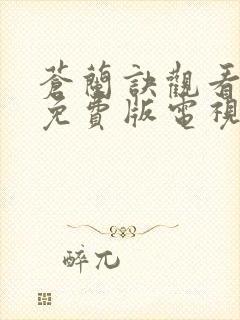 蒼蘭訣觀看
免費版電視
醉兀